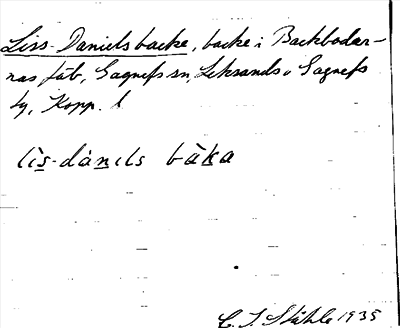 Liss-Danielsbacke, backe i Backbodar-
nas fäb, Gagnefs sn, Leksands o Gagnefs
tg, Kopp. l
lìs-dànɩls bàka
C. I. Ståhle 1935